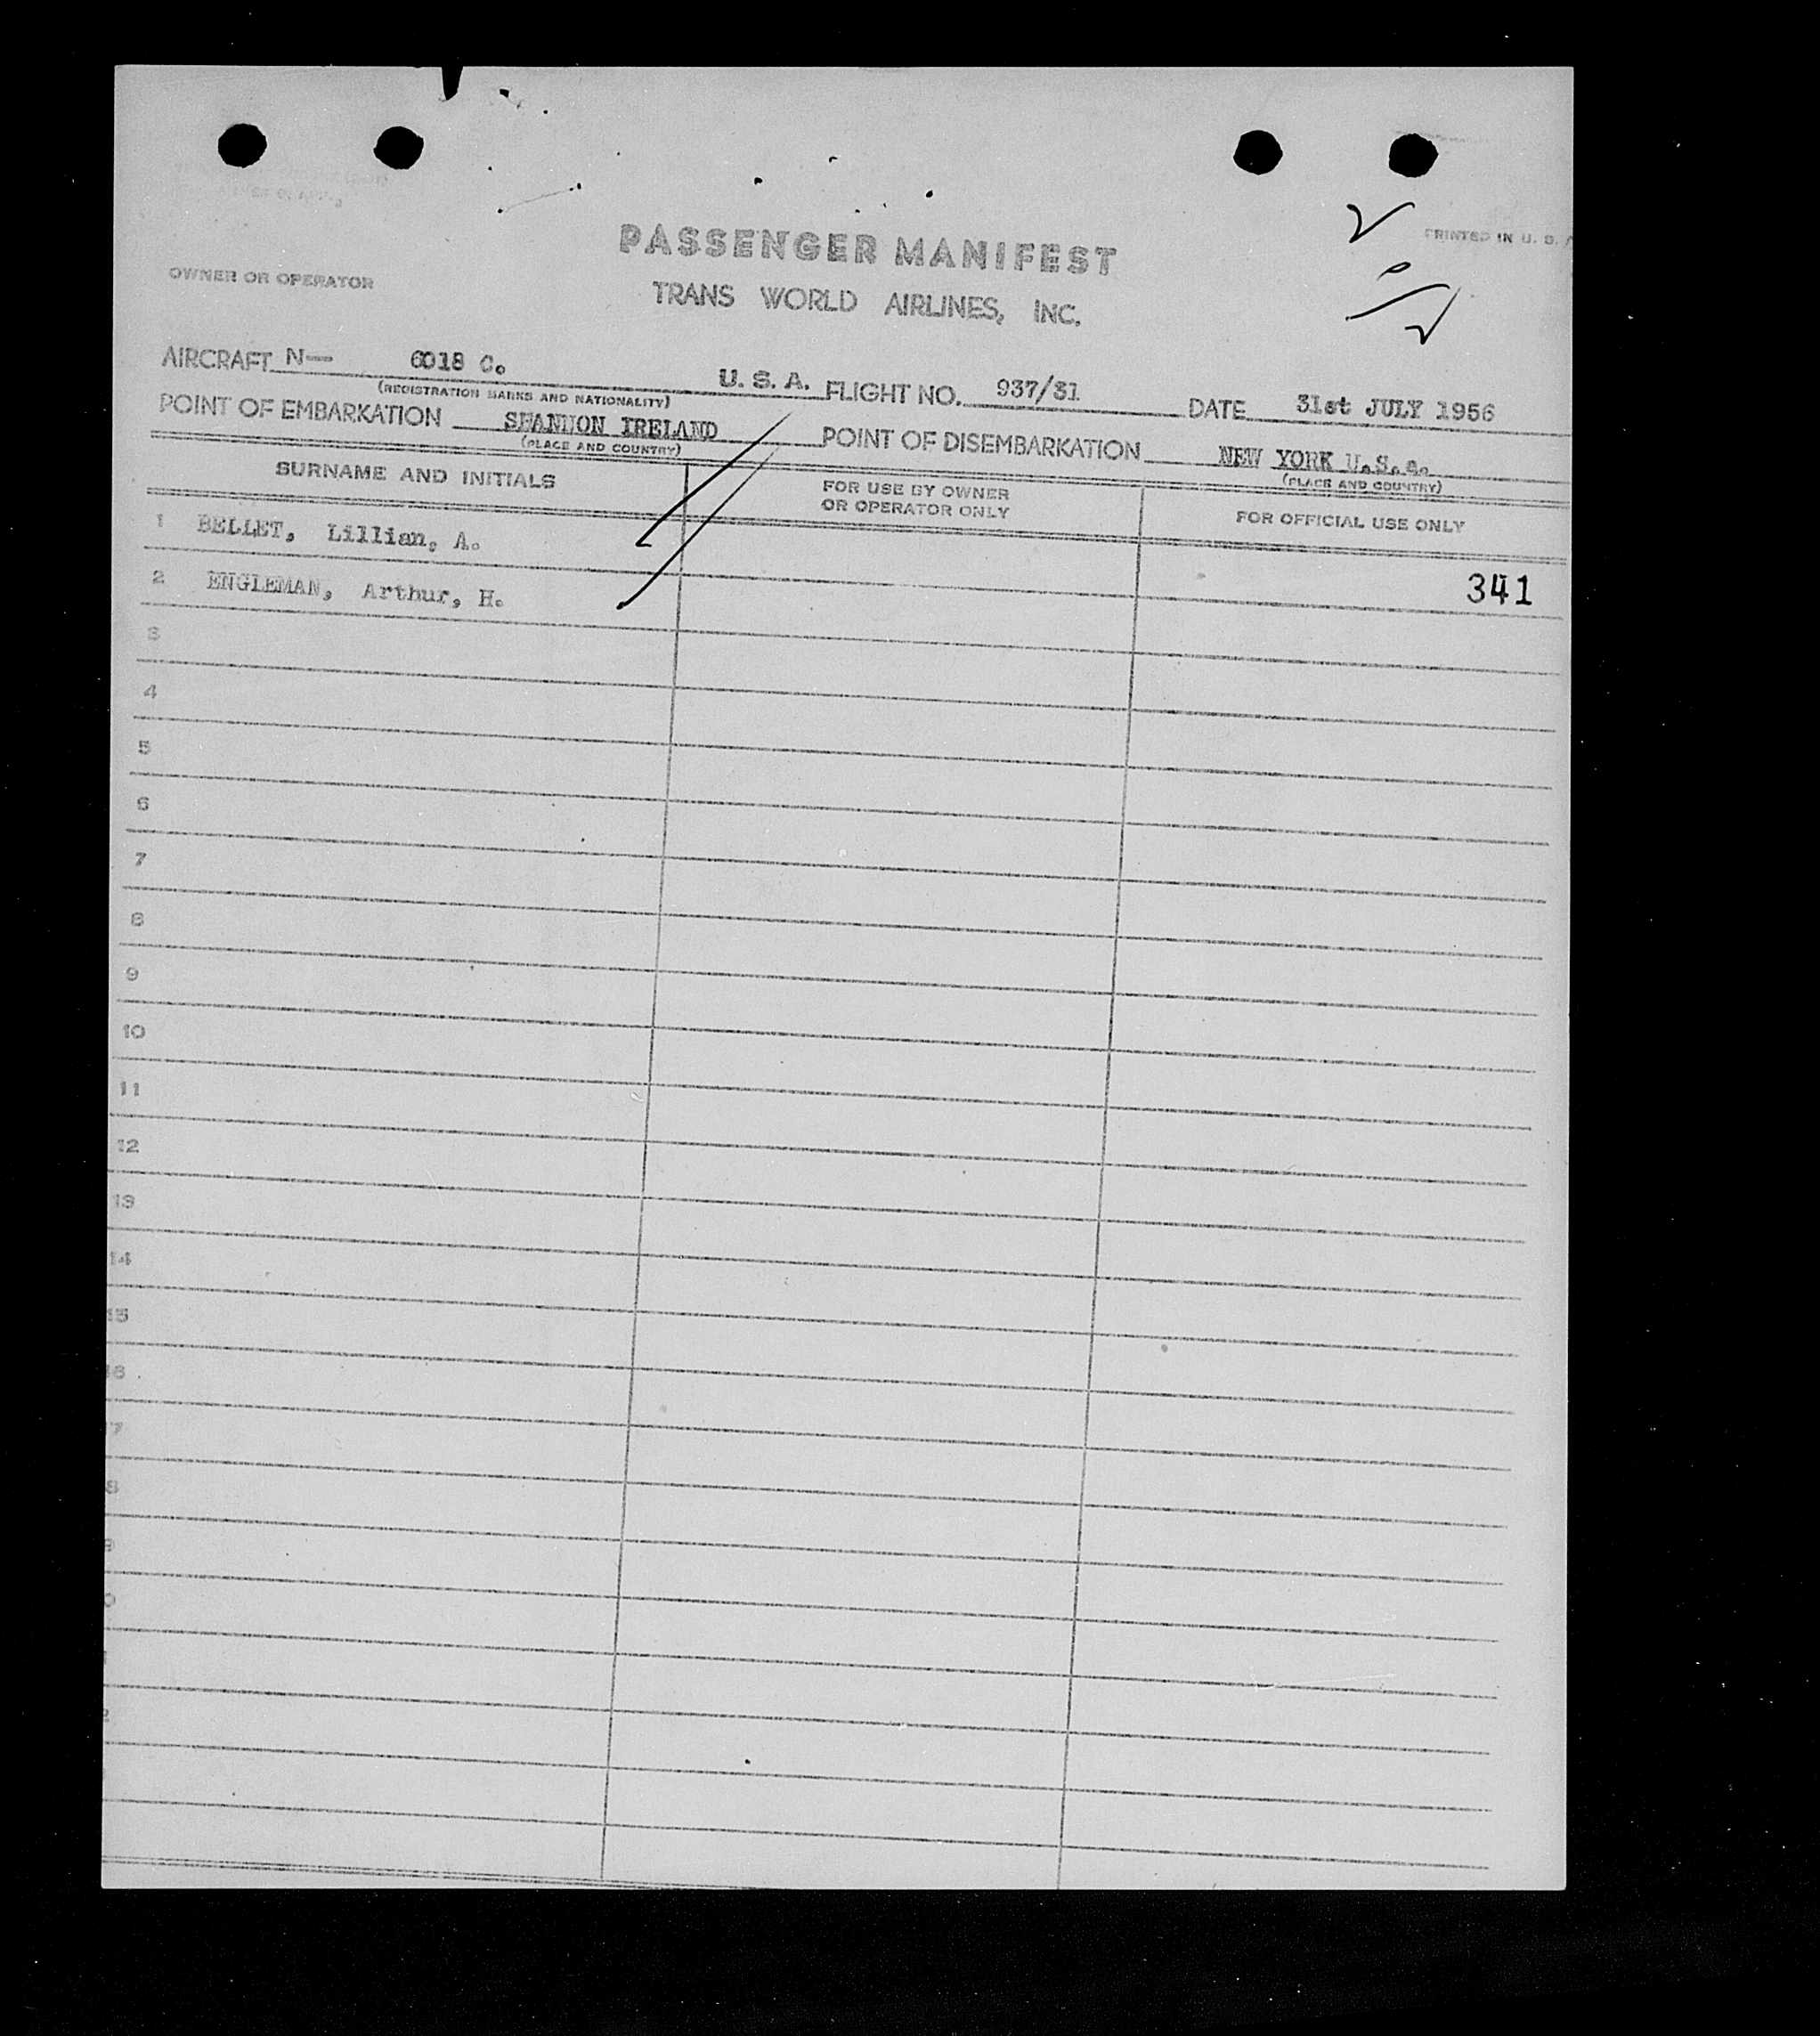 PASSENGER MANIFEST
PRINTED IN U. S.
OWNER OR OPERATOR
TRANS WORLD AIRLINES, INC.
AIRCRAFT N— 6018 C. U. S. A. FLIGHT NO. 937/31 DATE 31st JULY 1956
(REGISTRATION MARKS AND NATIONALITY)
POINT OF EMBARKATION SHANNON IRELAND POINT OF DISEMBARKATION NEW YORK U.S.a.
(PLACE AND COUNTRY) (PLACE AND COUNTRY)
SURNAME AND INITIALS FOR USE BY OWNER OR OPERATOR ONLY FOR OFFICIAL USE ONLY
1 BELLET, Lillian, A.
2 ENGLEMAN, Arthur, H. 341
3
4
5
6
7
8
9
10
11
12
13
14
15
16
7
8
9
0